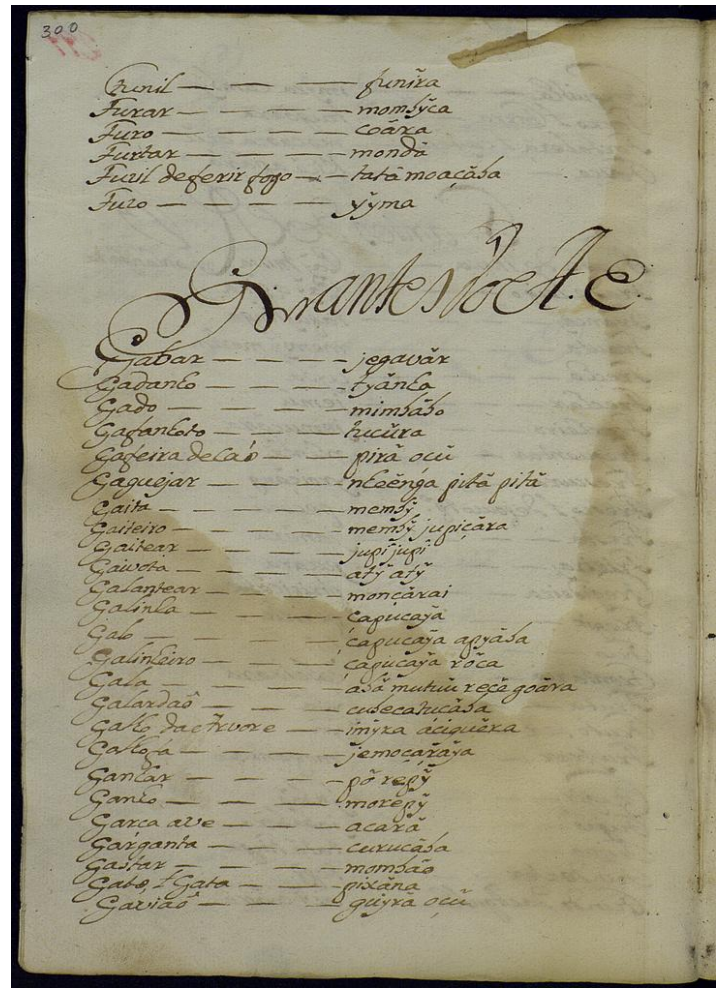 300
Funil — — — — funĩra
Furar — — — — mombỹca
Furo — — — — coãra
Furtar — — — — mondã
Fuzil de ferir fogo — — tatã moaçãba
Fuzo — — — — ỹỹma
G. antes do A. E
Gabar — — — — jegavãr
Gadanho — — — — tyãnha
Gado — — — — mimbãbo
Gafanhoto — — — tucũra
Gafeira de Caõ — — pirã ocũ
Gaguejar — — — nheẽnga pitã pitã
Gaita — — — — membỹ
Gaiteiro — — — — membỹ jupiçãra
Gaitear — — — — jupĩ jupĩ
Gaivota — — — — atỹ atỹ
Galantear — — — moncãrai
Galinha — — — — çapucaỹa
Galo — — — — çapucaỹa apyãba
Galinheiro — — — çapucaỹa rõca
Gala — — — — abã mutuũ reçẽ goãra
Galardaõ — — — cubecatuçãba
Galho da Arvore — — imỹra açiquẽra
Galhofa — — — — jemoçarãya
Ganhar — — — — põ repỹ
Ganho — — — — morepỹ
Garca ave — — — acarã
Garganta — — — curucãba
Gastar — — — — mombão
Gato, l Gata — — — pixãna
Gaviaõ — — — — guyrã ocũ